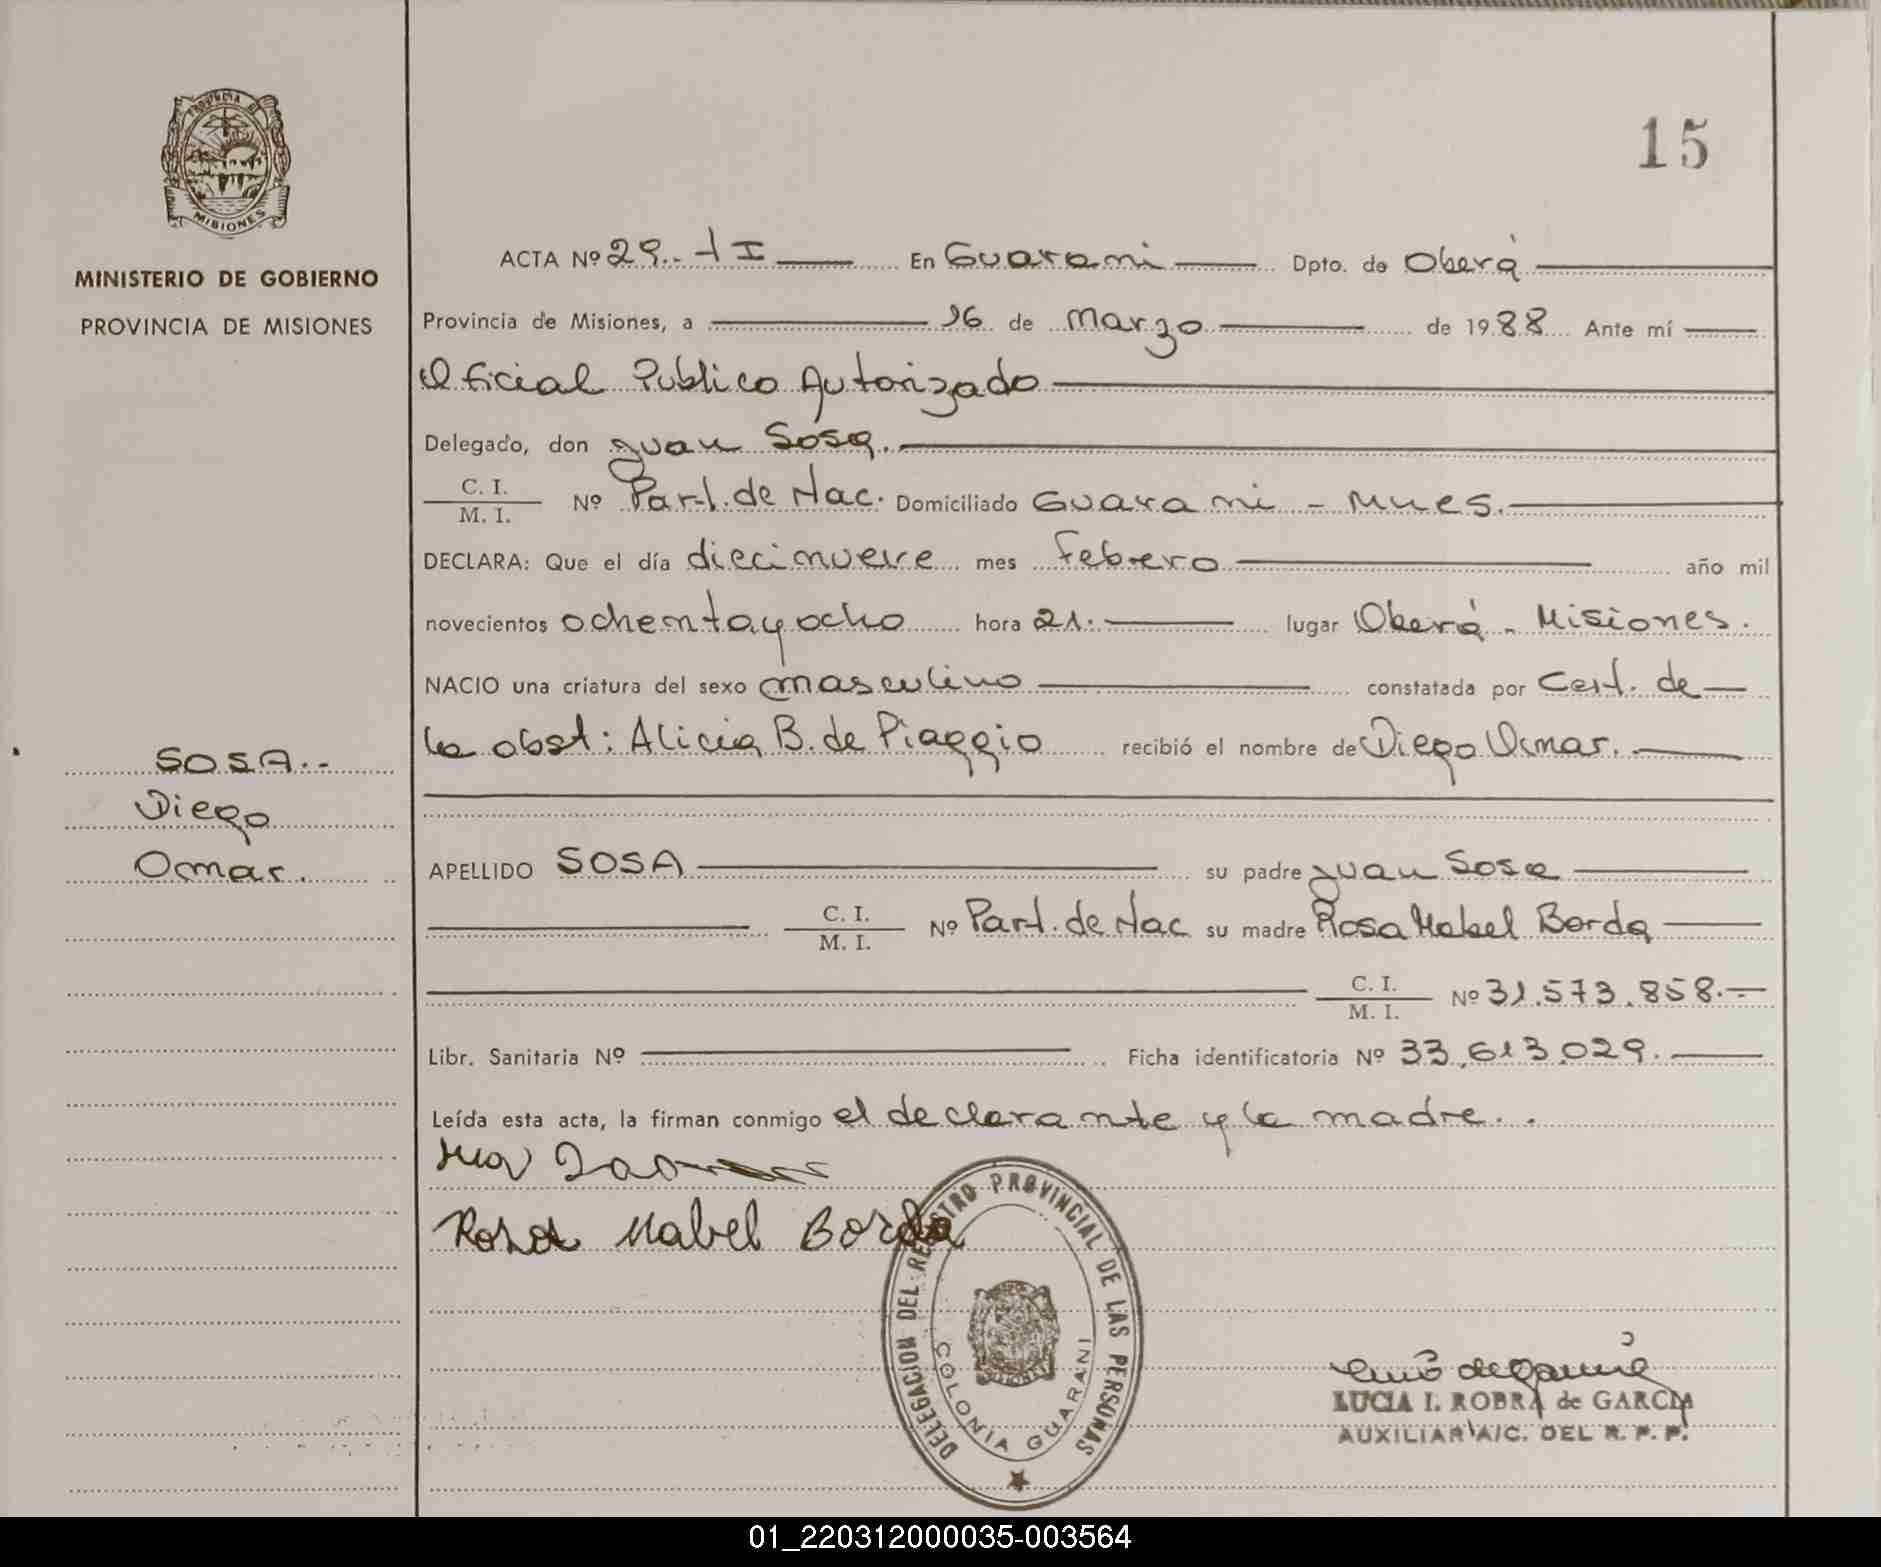 PROVINCIA DE
MISIONES
MINISTERIO DE GOBIERNO
PROVINCIA DE MISIONES
SOSA.-
Diego
Omar.
15
ACTA Nº 29.- tI En Guarani Dpto. de Oberá
Provincia de Misiones, a 16 de Marzo de 1988 Ante mí
Oficial Publico Autorizado
Delegado, don Juan Sosa.
C. I. / M. I. Nº Part. de Nac. Domiciliado Guarani - Mnes.
DECLARA: Que el día diecinueve mes Febrero año mil
novecientos ochentayocho hora 21. lugar Oberá - Misiones.
NACIO una criatura del sexo masculino constatada por Cert. de
la obst: Alicia B. de Piaggio recibió el nombre de Diego Omar.
APELLIDO SOSA su padre Juan Sosa
C. I. / M. I. Nº Part. de Nac su madre Rosa Mabel Borda
C. I. / M. I. Nº 31.573.858.-
Libr. Sanitaria Nº Ficha identificatoria Nº 33.613.029.
Leída esta acta, la firman conmigo el declarante y la madre..
Rosa Mabel Borda
DELEGACION DEL REGISTRO PROVINCIAL DE LAS PERSONAS
COLONIA GUARANI
LUCIA I. ROBRA de GARCIA
AUXILIAR A/C. DEL R. P. P.
01_220312000035-003564